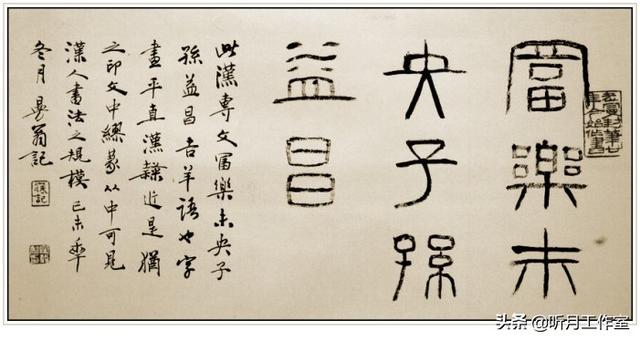 冨樂未
央子孫
益昌
此漢專文冨樂未央子
孫益昌吉羊語也字
畫平直漢隸近是猶
之印文中繆篆从中可見
漢人書法之規模己未年
冬月 翁記
头条 @昕月工作室